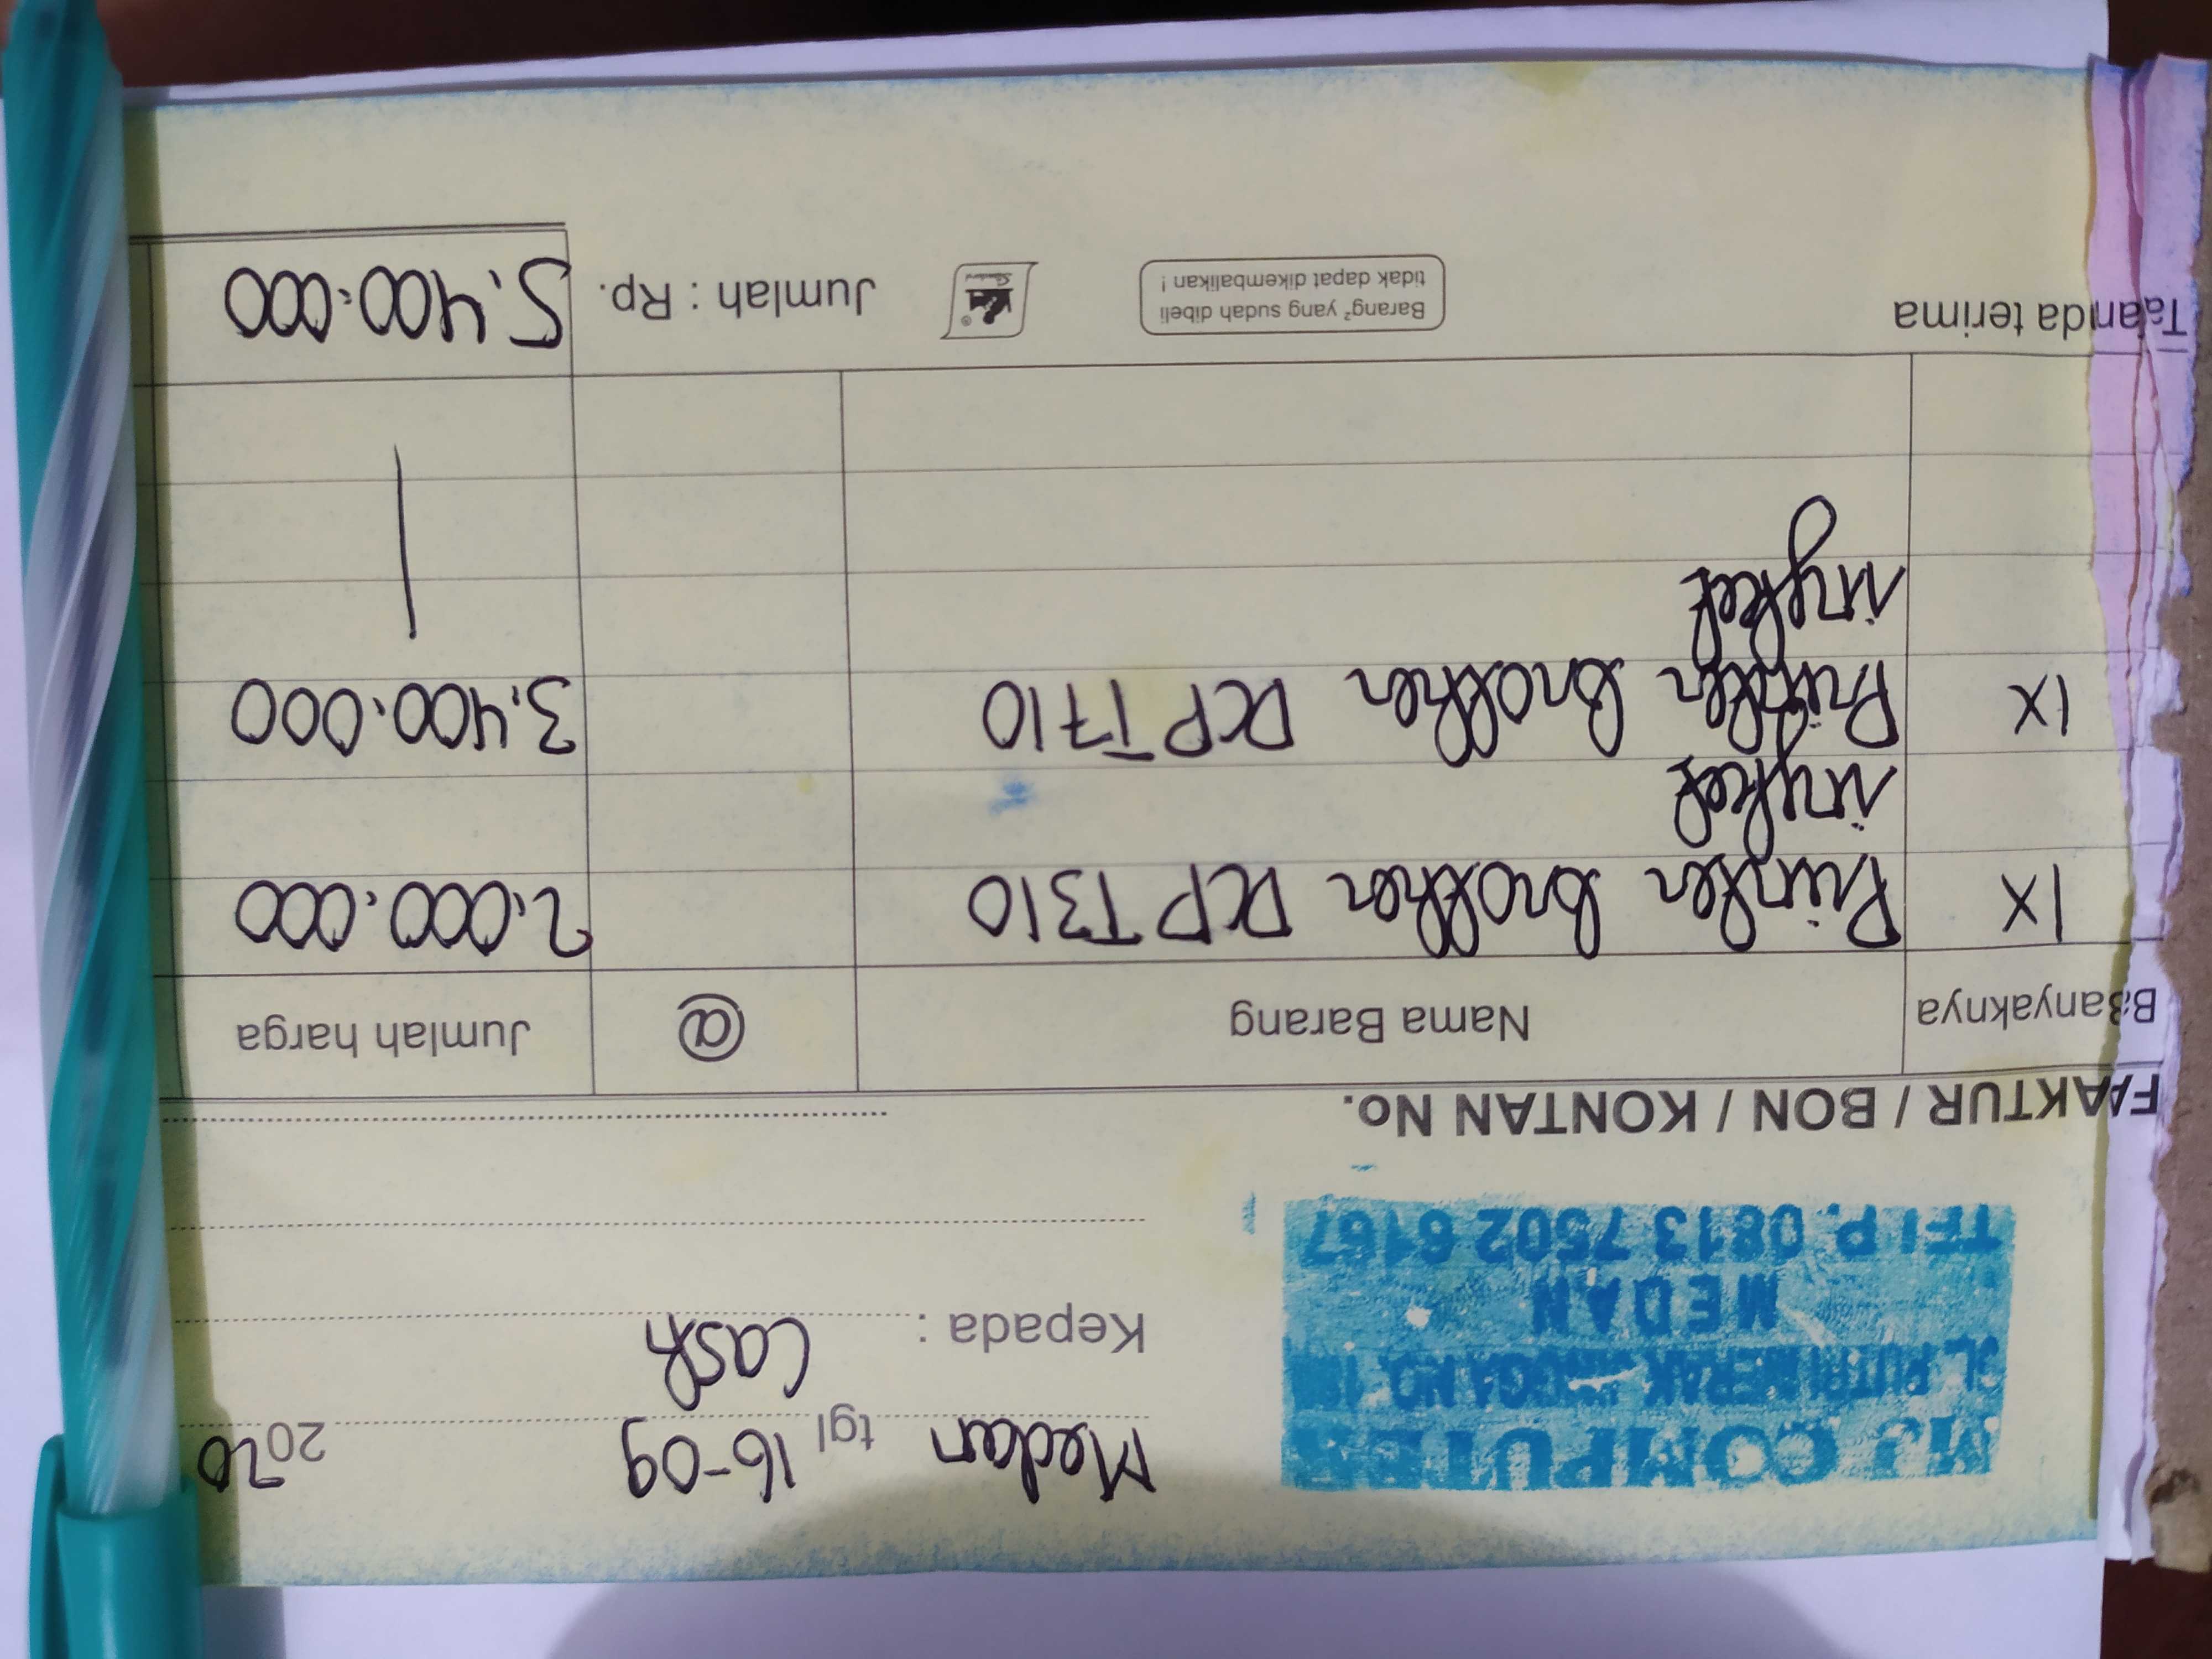 MJ COMPUTER
JL. PUTRI MERAK JINGGA NO.
MEDAN
TELP. 0813 7502 6167
Medan tgl 16-09 2020
Kepada : Cash
FAKTUR / BON / KONTAN No.
Banyaknya Nama Barang @ Jumlah harga
1x Printer brother DCP T310 2.000.000
inykel
1x Printer brother DCP T710 3.400.000
inykel
Tanda terima
Barang² yang sudah dibeli
tidak dapat dikembalikan !
Jumlah : Rp. 5.400.000